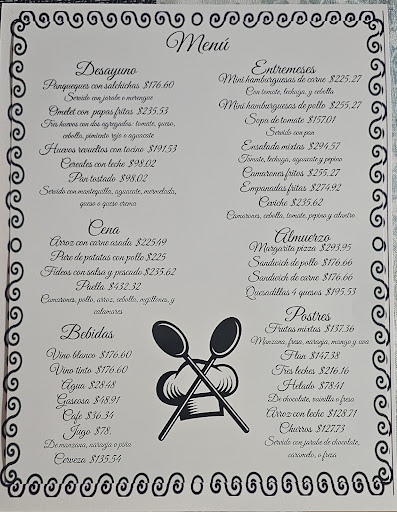 Menú
Desayuno
Panqueques con salchichas $176.60
Servido con jarabe o merengue
Omelet con papas fritas $235.53
Tres huevos con dos agregados: tomate, queso,
cebolla, pimiento rojo o aguacate
Huevos revueltos con tocino $191.53
Cereales con leche $98.02
Pan tostado $98.02
Servido con mantequilla, aguacate, mermelada,
queso o queso crema
Cena
Arroz con carne asada $225.49
Pure de patatas con pollo $225
Fideos con salsa y pescado $235.62
Paella $432.32
Camarones, pollo, arroz, cebolla, mejillones, y
calamares
Bebidas
Vino blanco $176.60
Vino tinto $176.60
Agua $28.48
Gaseosa $48.91
Cafe $36.34
Jugo $78.
De manzana, naranja o piña
Cerveza $135.54
Entremeses
Mini hamburguesas de carne $225.27
Con tomate, lechuga, y cebolla
Mini hamburguesas de pollo $255.27
Sopa de tomate $157.01
Servido con pan
Ensalada mixtas $294.57
Tomate, lechuga, aguacate y pepino
Camarones fritos $255.27
Empanadas fritas $274.92
Ceviche $235.62
Camarones, cebolla, tomate, pepino y cilantro
Almuerzo
Margarita pizza $293.95
Sandwich de pollo $176.66
Sandwich de carne $176.66
Quesadillas 4 quesos $195.53
Postres
Frutas mixtas $137.36
Manzana, fresa, naranja, mango y uva
Flan $147.38
Tres leches $216.16
Helado $78.41
De chocolate, vainilla o fresa
Arroz con leche $128.71
Churros $127.73
Servido con jarabe de chocolate,
caramelo, o fresa